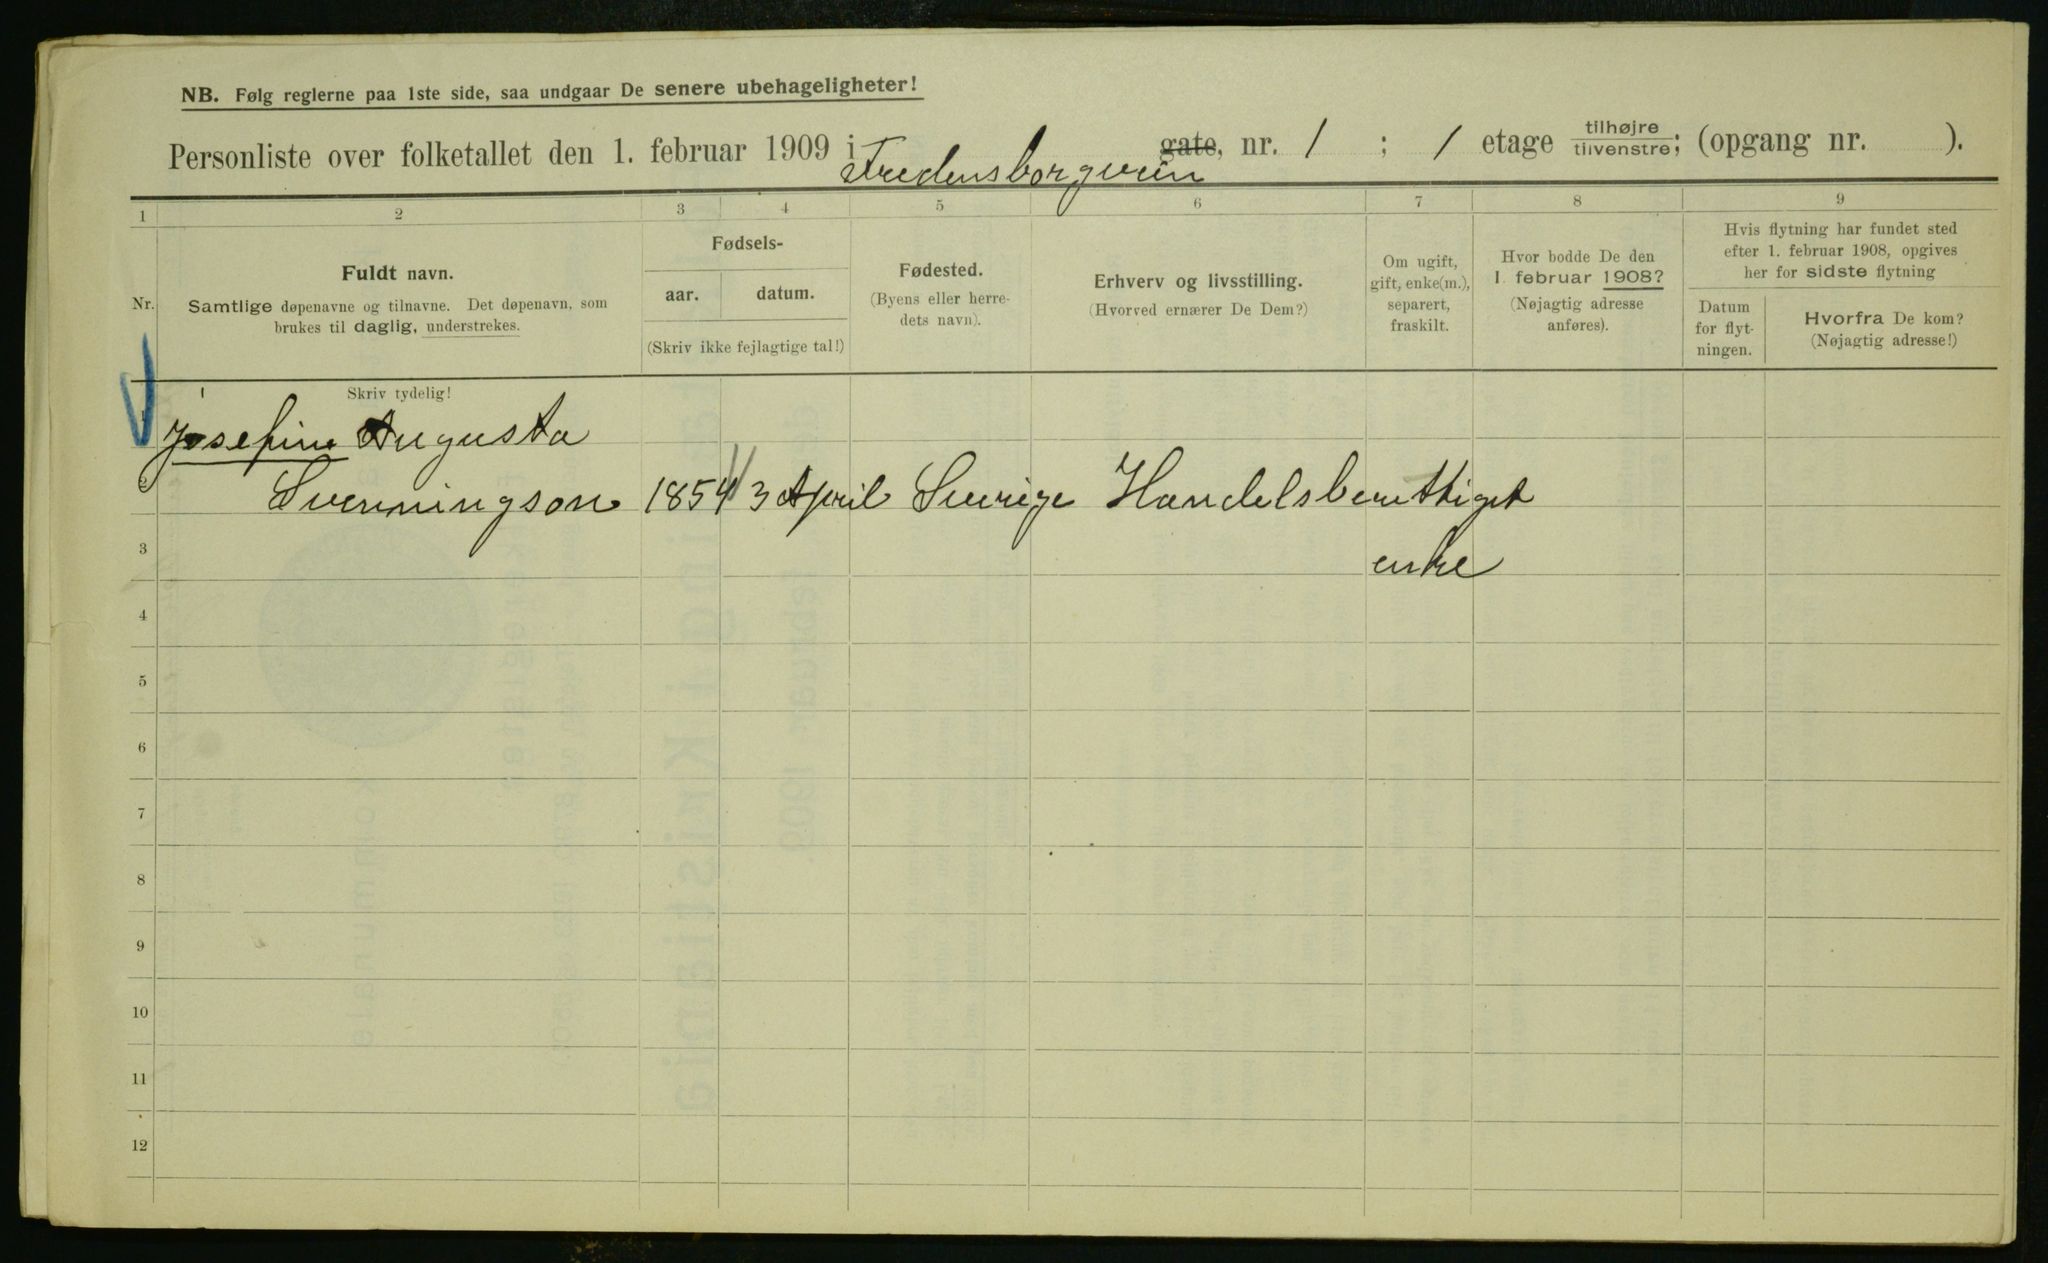 NB. Følg reglerne paa 1ste side, saa undgaar De senere ubehageligheter!
Personliste over folketallet den 1. februar 1909 i Fredensborgveien gate, nr. 1 ; 1 etage tilhøjre tilvenstre; (opgang nr. ).
1 2 3 4 5 6 7 8 9
Nr.
Fuldt navn.
Samtlige døpenavne og tilnavne. Det døpenavn, som
brukes til daglig, understrekes.
Fødsels-
aar. datum.
(Skriv ikke fejlagtige tal!)
Fødested.
(Byens eller herre-
dets navn).
Erhverv og livsstilling.
(Hvorved ernærer De Dem?)
Om ugift,
gift, enke(m.),
separert,
fraskilt.
Hvor bodde De den
1. februar 1908?
(Nøjagtig adresse
anføres).
Hvis flytning har fundet sted
efter 1. februar 1908, opgives
her for sidste flytning
Datum
for flyt-
ningen.
Hvorfra De kom?
(Nøjagtig adresse!)
Skriv tydelig!
1 Josefine Augusta
2 Svenningson 1854 3 April Sverige Handelsberettiget
3 enke
4
5
6
7
8
9
10
11
12